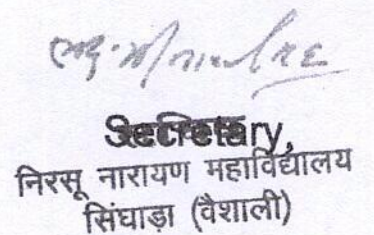 Secretary,
निरसू नारायण महाविद्यालय
सिंघाड़ा (वैशाली)